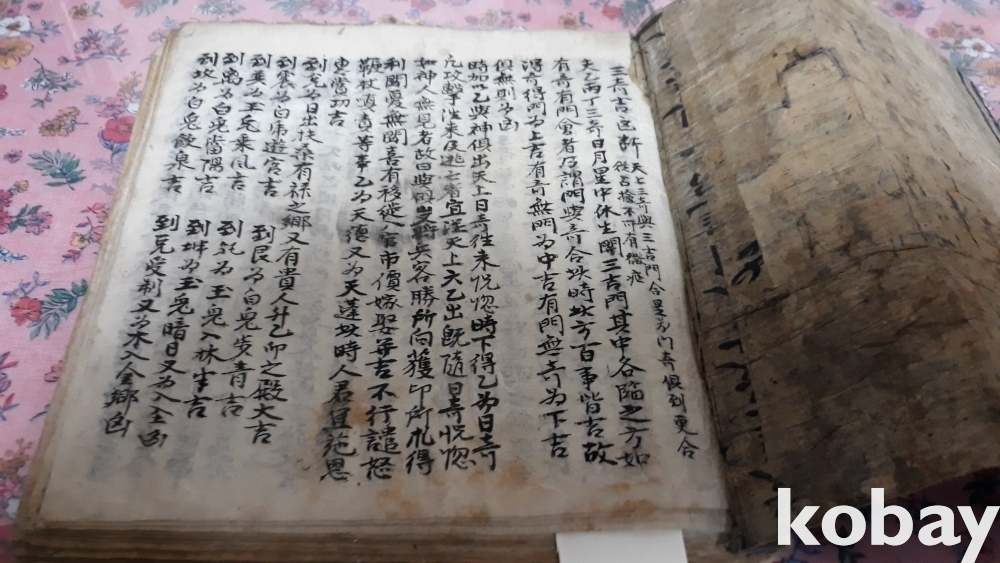 三奇吉凶解 天上三奇與三吉門合是爲門奇俱到更合
從吉檢不可有微疵
天乙丙丁三奇日月星中休生開三吉門其中各臨之方如
有奇有門會者乃謂門與奇合此時此方百事皆吉故
得奇得門爲上吉有奇無門爲中吉有門無奇爲下吉
俱無則爲凶
時加六乙與神俱出天上日奇往來恍惚時下得乙爲日奇
凡攻擊往來及逃亡者宜從天上六乙出旣隨日奇恍惚
如神人無見者故曰與 兵客勝所向獲印所求得
利聞憂無聞喜有移徙入官市價嫁娶竝吉不行譴怒
鞭杖嗔責等事乙爲天德又爲天蓬此時人君宜施恩
吏當切吉
到 爲日出扶桑有祿之鄕又有貴人升乙卯之殿大吉
到震爲白 遊宮吉 到艮爲白兎步靑吉
到巽爲玉兎乘風吉 到乾爲玉兎入林半吉
到离爲白兎當陽吉 到坤爲玉兎暗目又爲入 凶
到坎爲白兎飮泉吉 到兌受制又爲木入金鄕凶
kobay